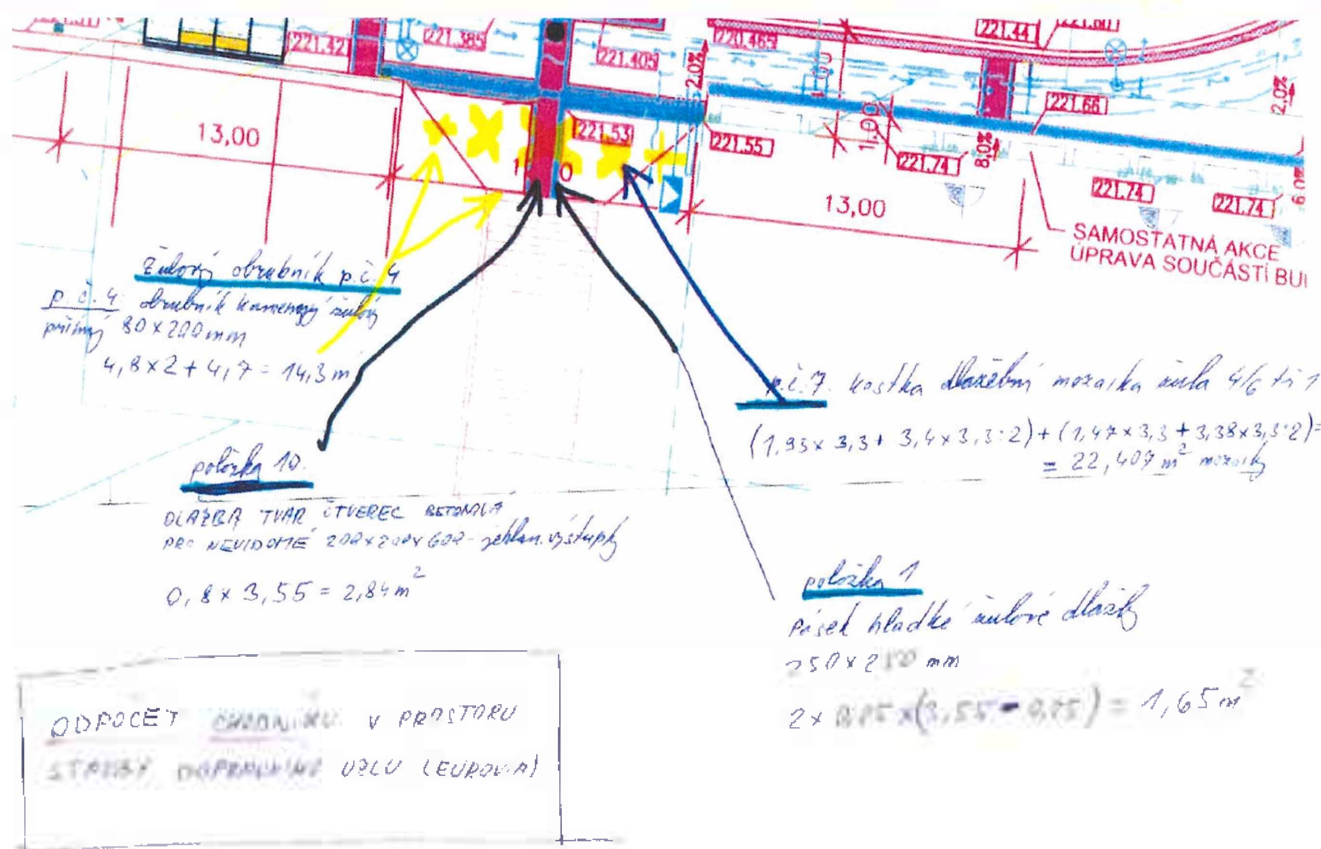 221.42
221.385
221.405
220.465
2.0%
1.00
221.44
221.60
2.0%
13,00
221.53
221.55
1.00
221.66
221.74
8.0%
221.74
221.74
6.0%
1
0
13,00
SAMOSTATNÁ AKCE
ÚPRAVA SOUČÁSTÍ BU
Žulový obrubník p.č. 4
p.č. 4 obrubník kamenný žulový
přímý 80 x 200 mm
4,8 x 2 + 4,7 = 14,3 m
p.č. 7. kostka dlažební mozaika žula 4/6 tř 1
(1.93 x 3,3 + 3,4 x 3,3:2) + (1,47 x 3,3 + 3,38 x 3,3:2) =
= 22,407 m² mozaiky
položka 10.
DLAŽBA TVAR ČTVEREC BETONOVÁ
PRO NEVIDOMÉ 200x200x600 - jehlan. výstupky
0,8 x 3,55 = 2,84 m²
položka 1
Pásek hladké žulové dlažby
250 x 250 mm
2 x 0,25 x (3,55 - 0,25) = 1,65 m²
ODPOČET CHODNÍKU V PROSTORU
STAVBY DOPRAVNÍHO UZLU (EUROVIA)